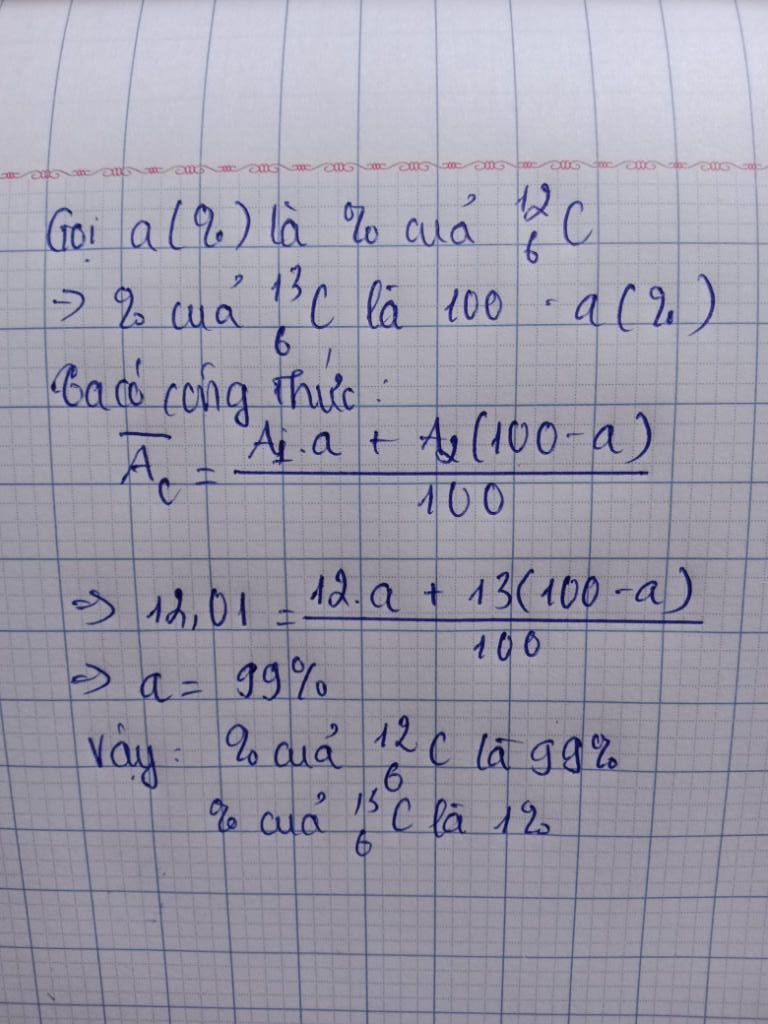 Gọi a(%) là % của ¹²₆C
=> % của ¹³₆C là 100 - a(%)
Ta có công thức:
A̅_C = (A₁.a + A₂(100-a))/100
=> 12,01 = (12.a + 13(100-a))/100
=> a = 99%
Vậy: % của ¹²₆C là 99%
% của ¹³₆C là 1%